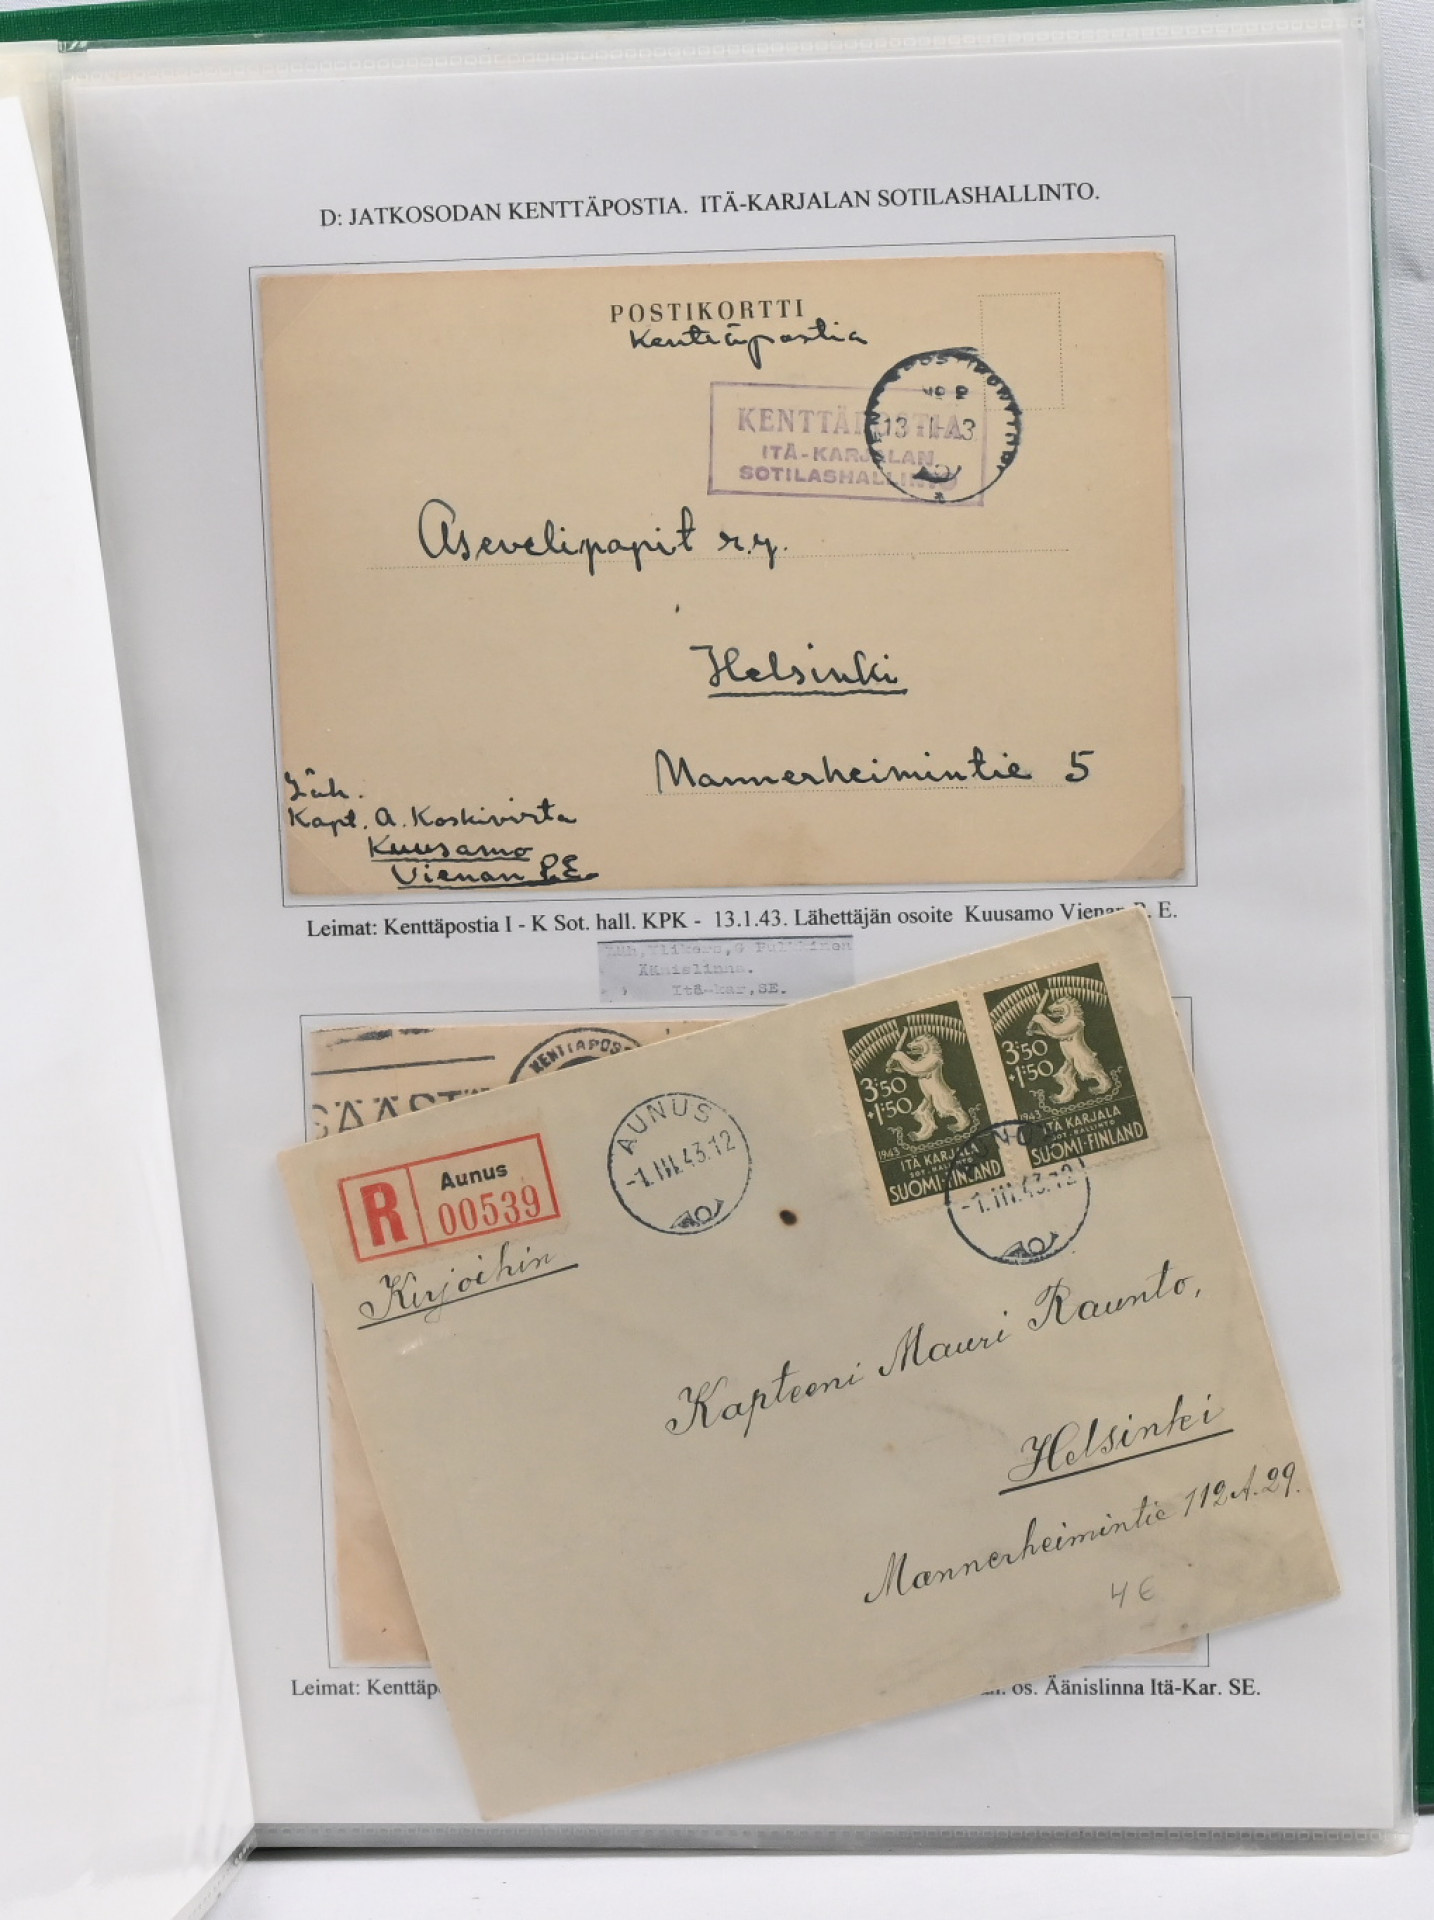 D: JATKOSODAN KENTTÄPOSTIA. ITÄ-KARJALAN SOTILASHALLINTO.
POSTIKORTTI
Kenttäpostia
KENTTÄPOSTIA
ITÄ-KARJALAN
SOTILASHALLINTO
13-1-43
Asevelipapit r.y.
Helsinki
Mannerheimintie 5
Läh.
Kapt. A. Koskivirta
Kuusamo
Vienan P.E.
Leimat: Kenttäpostia I - K Sot. hall. KPK - 13.1.43. Lähettäjän osoite Kuusamo Vienan P. E.
Äänislinna.
Itä-kar, SE.
KENTTÄPOS
SÄÄST
R Aunus
00539
AUNUS
-1.III.43.12
3:50
+1:50
1943
ITÄ KARJALA
SOT. HALLINTO
SUOMI-FINLAND
3:50
+1:50
1943
ITÄ KARJALA
SOT. HALLINTO
SUOMI-FINLAND
AUNUS
-1.III.43.12
Kirjoihin
Kapteeni Mauri Raunto,
Helsinki
Mannerheimintie 112 A. 29.
4 €
Leimat: Kenttäp
os. Äänislinna Itä-Kar. SE.